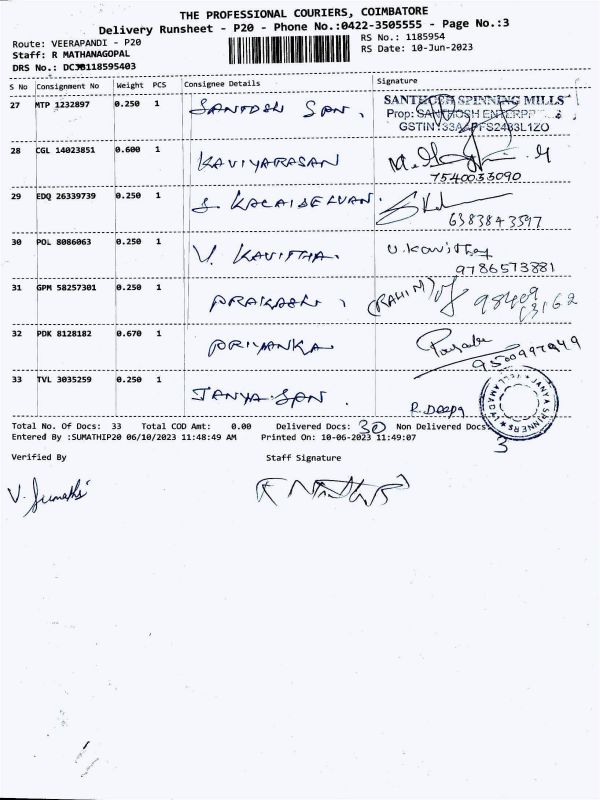 THE PROFESSIONAL COURIERS, COIMBATORE
Delivery Runsheet - P20 - Phone No.:0422-3505555 - Page No.:3
Route: VEERAPANDI - P20
RS No.: 1185954
Staff: R MATHANAGOPAL
RS Date: 10-Jun-2023
DRS No.: DCJB118595403
S No Consignment No Weight PCS Consignee Details Signature
27 MTP 1232897 0.250 1 SANTOSH SPN. SANTHOSH SPINNING MILLS
Prop: SANTHOSH ENTERPRI
GSTIN:
28 CGL 14023851 0.600 1 KAVIYARASAN
7540033090
29 EDQ 26339739 0.250 1 S. KALAISELVAN.
6383843597
30 POL 8086063 0.250 1 V. KAVITHA. V. Kavitha
9786573881
31 GPM 58257301 0.250 1 PRAKASH (RAHIM) 98409
63162
32 PDK 8128182 0.670 1 PRIYANKA
9500997949
33 TVL 3035259 0.250 1 JANYA SPN. R. Deepa JANYA SPINNERS
Total No. Of Docs: 33 Total COD Amt: 0.00 Delivered Docs: 30 Non Delivered Docs:
3
Entered By :SUMATHIP20 06/10/2023 11:48:49 AM Printed On: 10-06-2023 11:49:07
Verified By Staff Signature
V. Sumathi